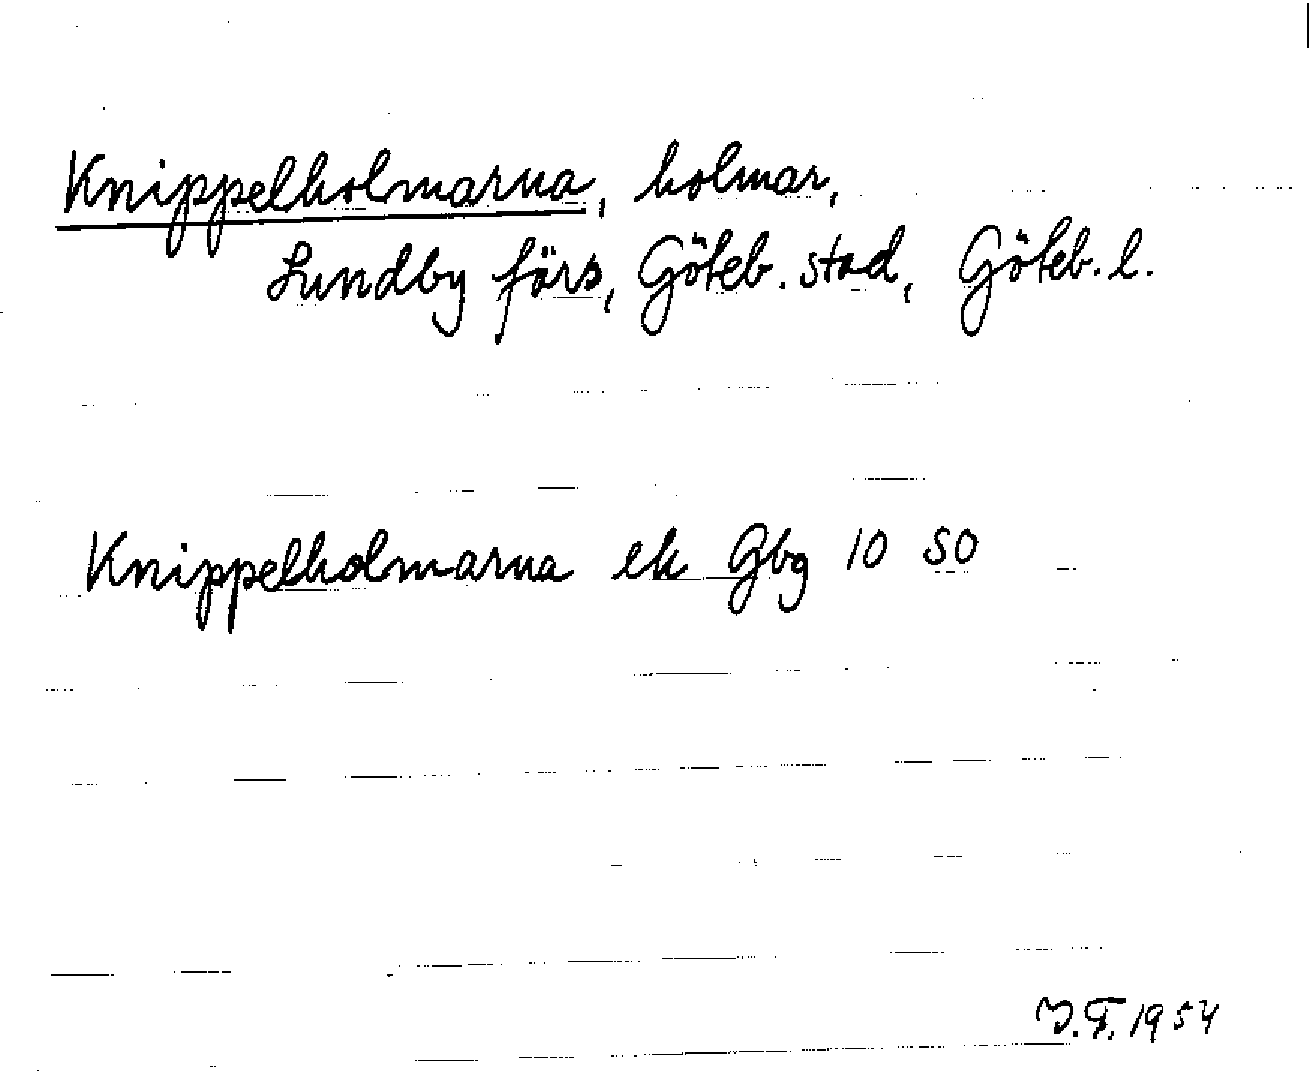 Knippelholmarna, holmar,
Lundby förs, Göteb. stad, Göteb. l.
Knippelholmarna ek Gbg 10 SO
J.F. 1954